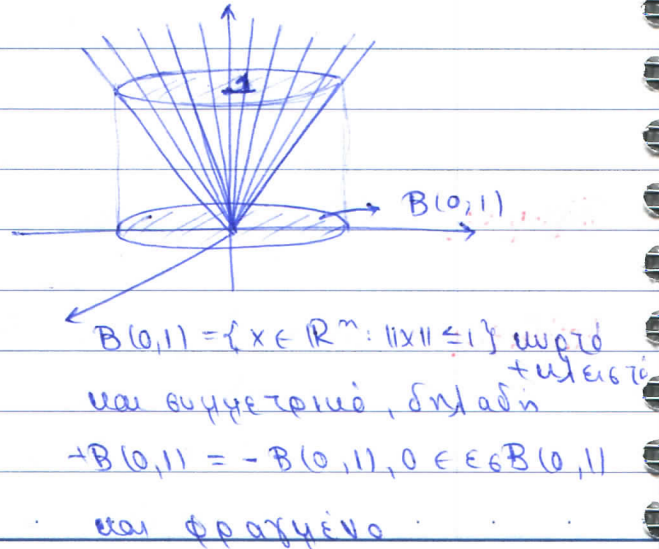 1
B(0,1)
B(0,1) = {x ∈ ℝⁿ : ||x|| ≤ 1} κυρτό
+ κλειστό
και συμμετρικό, δηλαδή
+B(0,1) = -B(0,1), 0 ∈ εσB(0,1)
και φραγμένο